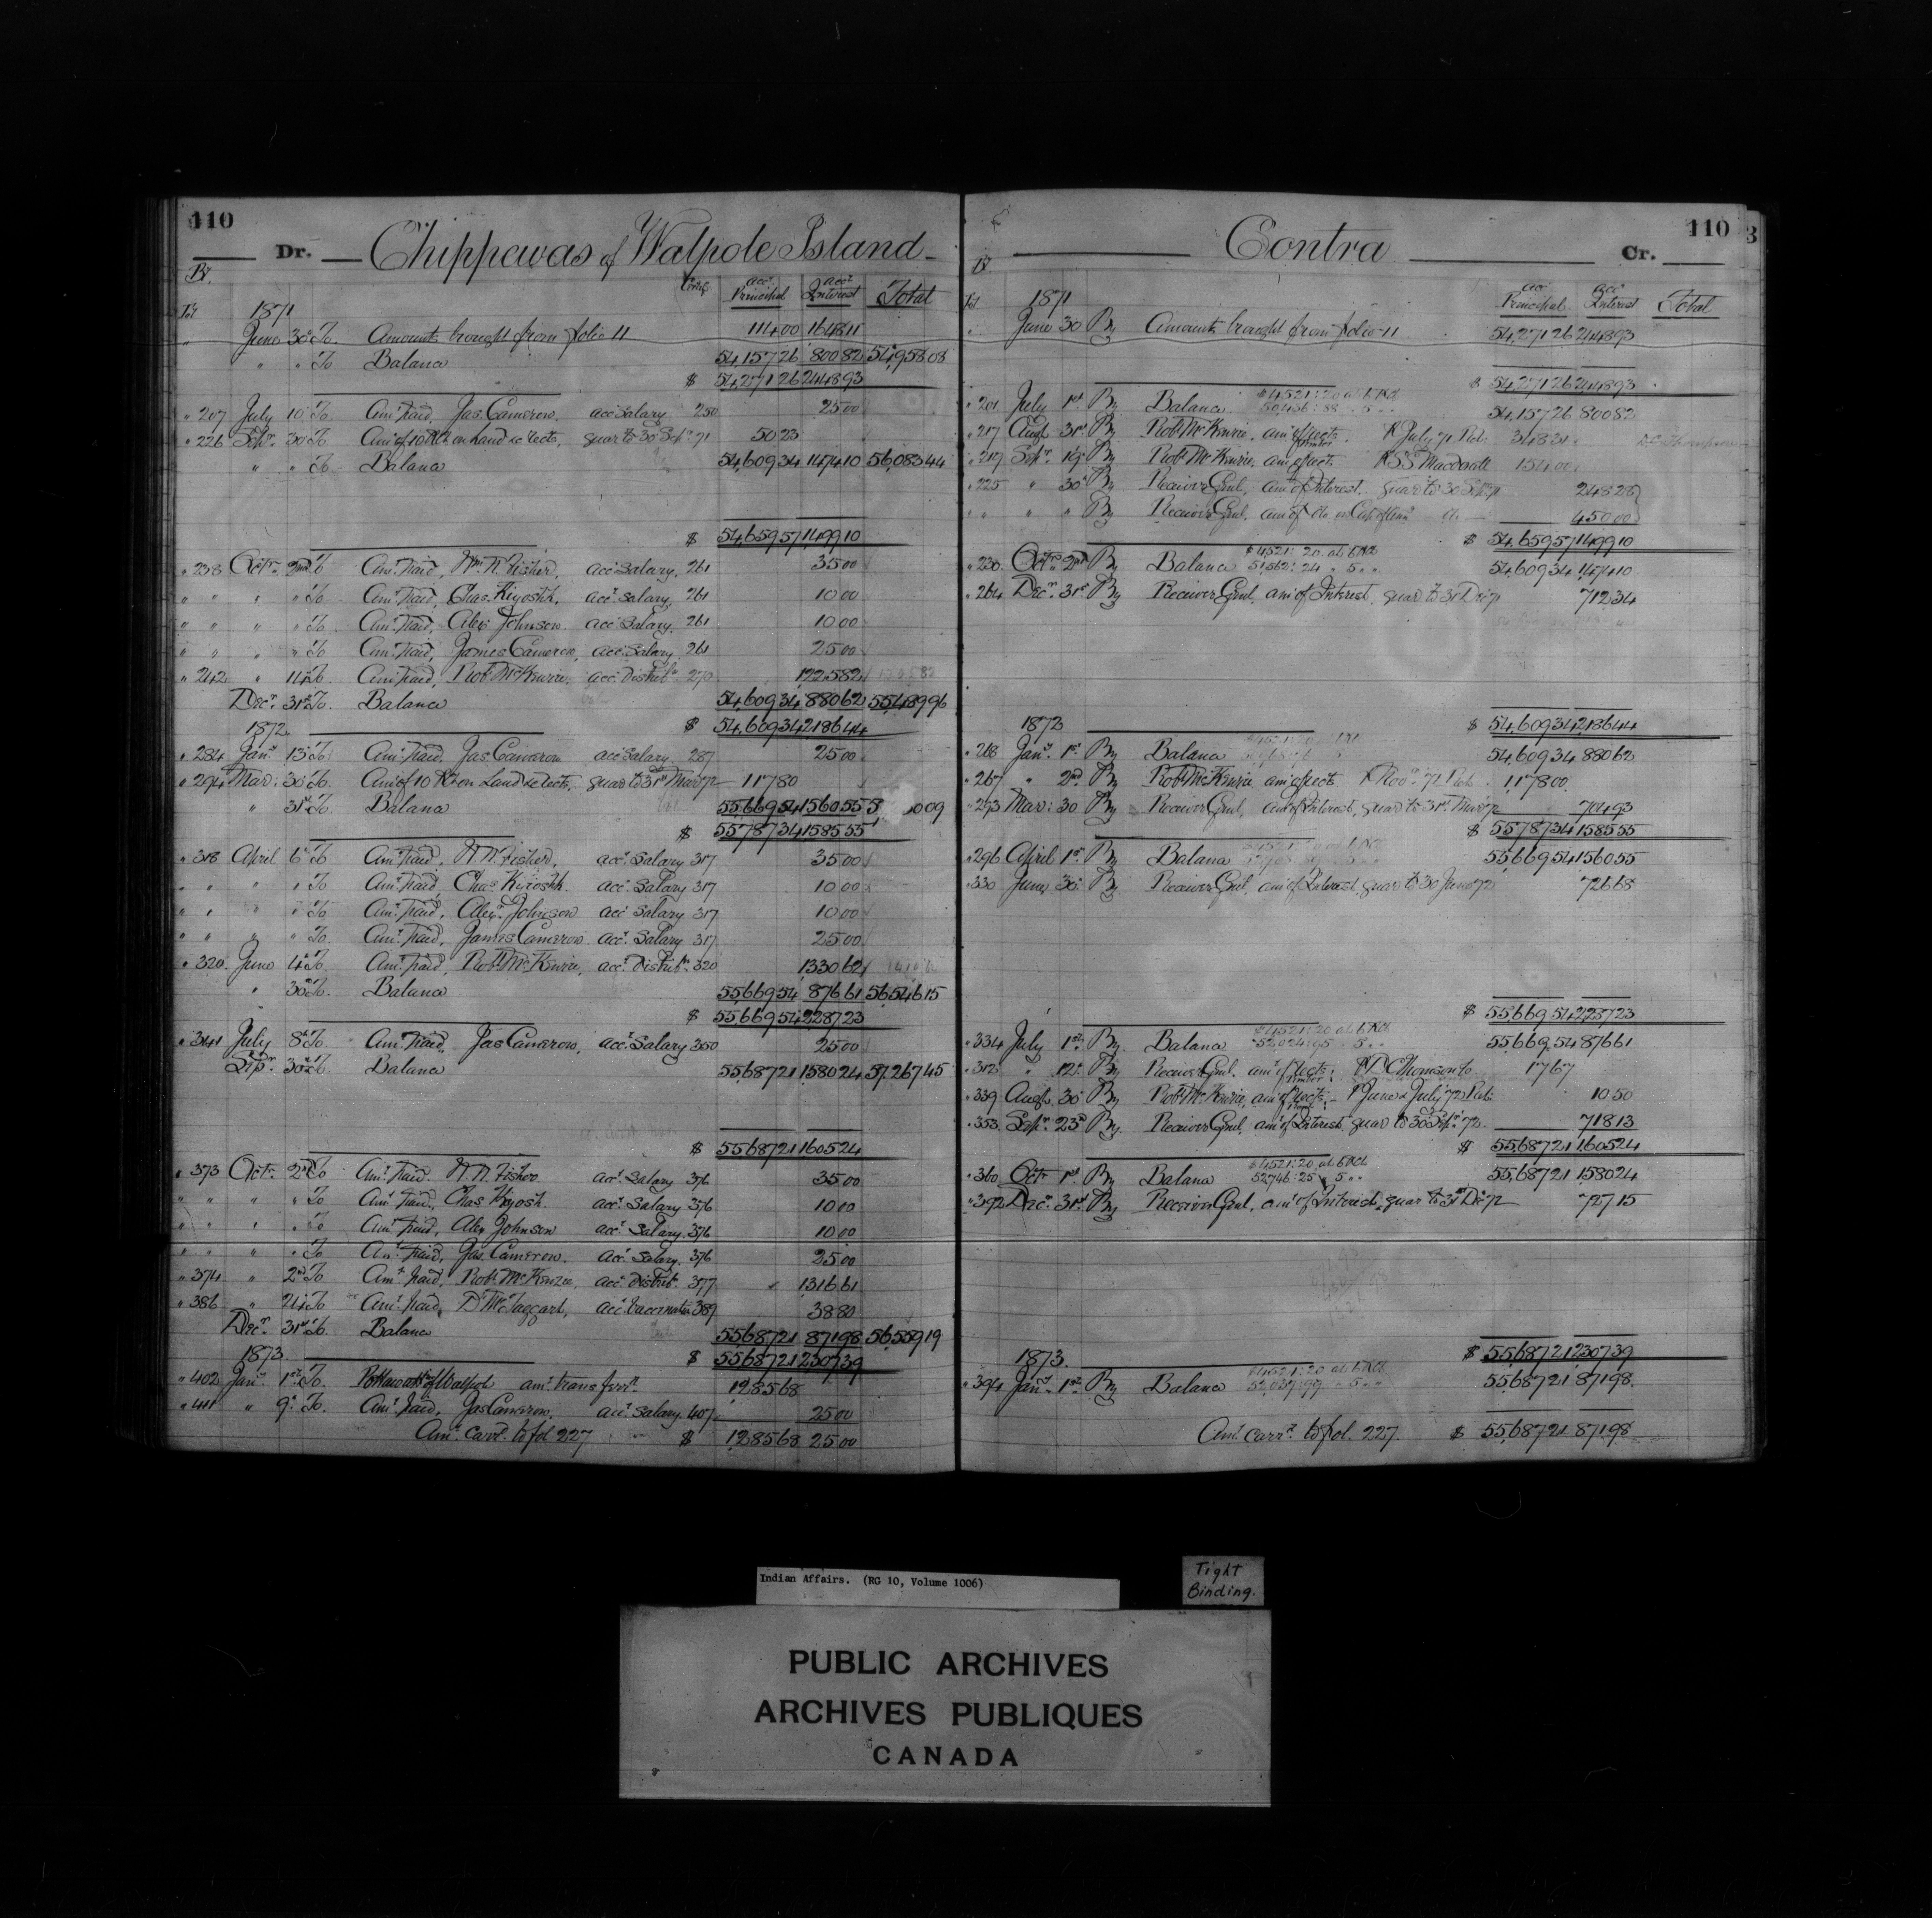 110
Dr. Chippewas of Walpole Island
Acct. Principal Acct. Interest Total
1871
June 30 To Amounts brought from folio 11 114 00 1648 11
" " To Balance 54,157 26 800 82 54,958 08
$ 54,271 26 2448 93
" 207 July 10 To Amt. paid, Jas. Cameron, acct. Salary 250 25 00
" 226 Sept. 30 To Amt. of 10 on land collects, quar. to 30 Sept. 71 50 23
" " To Balance 54,609 34 1474 10 56,083 44
$ 54,659 57 1499 10
" 238 Octr. 2nd To Amt. paid, Wm. N. Fisher, acct. Salary, 261 35 00
" " " " To Amt. paid, Chas. Kiyoshk, acct. Salary, 261 10 00
" " " " To Amt. paid, Alex Johnson acct. Salary, 261 10 00
" " " " To Amt. paid, James Cameron, acct. Salary 261 25 00
" 242 " 14 To Amt. paid, Robt. McKenzie, acct. Distribn. 270 1225 82
Decr. 31st To Balance 54,609 34 880 62 55,489 96
$ 54,609 34 2,186 44
1872
" 284 Jany. 13 To Amt. paid Jas. Cameron acct. Salary 287 25 00
" 294 Mar: 30 To Amt. of 10 on Land collects, quar. to 31st Mar 72 117 80
" 31st To Balance 55,669 54 1560 55 009
$ 55,787 34 1585 55
" 318 April 6 To Amt. paid, N. N. Fisher, acct. Salary 317 35 00
" " " " To Amt. paid, Chas. Kiyoshk. acct. Salary 317 10 00
" " " " To Amt. paid, Alexr. Johnson acct. Salary 317 10 00
" " " " To Amt. paid, James Cameron acct. Salary 317 25 00
" 320 June 4 To Amt. paid, Robt. McKenzie, acct. Distribn. 320 1330 62
" 30 To Balance 55,669 54 876 61 56,546 15
$ 55,669 54 2,287 23
" 341 July 8 To Amt. paid, Jas Cameron, acct. Salary 350 25 00
Sepr. 30 To Balance 55,687 21 1580 24 57,267 45
$ 55,687 21 1605 24
" 373 Octr. 2nd To Amt. paid. N. N. Fisher acct. Salary 376 35 00
" " " " To Amt. paid, Chas Kiyosh. acct. Salary 376 10 00
" " " " To Amt. paid, Alex Johnson acct. Salary. 376 10 00
" " " " To Amt. paid, Jas. Cameron. acct. Salary. 376 25 00
" 374 " 2nd To Amt. paid, Robt. McKenzie, acct. Distribn. 377 1316 61
" 386 " 24 To Amt. paid, D. McTaggart, acct. Vaccination 389 38 80
Decr. 31st To Balance 55,687 21 871 98 56,559 19
$ 55,687 21 2307 39
1873.
" 402 Jany. 1st To. Pottawatts. of Walpole amt. transferrd. 1,285 68
" 411 " 9 To. Amt. paid, Jas Cameron, acct. Salary. 407 25 00
Amt. carrd. to fol 227 $ 1,285 68 25 00
110
Contra Cr.
Acct. Principal Acct. Interest Total
1871
June 30 By Amounts brought from folio 11 54,271 26 2448 93
$ 54,271 26 2448 93
" 201 July 1st By Balance $4,521:20 at 6 54,157 26 800 82
" 217 Augt. 31st By Robt. McKenzie, amt. of collects. July 71 348 31
" 219 Sepr. 19 By Robt. McKenzie, amt. of collect. S S Macdonell 154 00
" 225 " 30 By Receiver Genl., amt. of Interest, quar. to 30 Sep 71 248 28
" " " " By Receiver Genl. amt. of do. 450 00
$ 54,659 57 1499 10
" 230 Octr. 2nd By Balance $4,521:20 at 6 51,562:24 " 5 " " 54,609 34 1,474 10
" 264 Decr. 31st By Receiver Genl., amt. of Interest, quar to 31 Dec 71 712 34
$ 54,609 34 2,186 44
1872
" 268 Jany. 1st By Balance 54,609 34 880 62
" 267 " 2nd By Robt. McKenzie amt. of collects Novr. 71 1,178 00
" 293 Mar: 30 By Receiver Genl., amt. of Interest, quar to 31st Mar 72 704 93
$ 55,787 34 1585 55
" 296 April 1st By Balance 55,669 54 1560 55
" 330 June 30 By Receiver Genl., amt. of Interest, quar to 30 June 72 726 68
$ 55,669 54 2,287 23
" 334 July 1st By Balance $4521:20 at 6 52,024:95 " 5 " " 55,669 54 876 61
" 312 " 12 By Receiver Genl. amt. of collects, D Thomson 17 67
" 339 Augt. 30 By Robt. McKenzie, amt. of collects, June & July 72 10 50
" 353 Sepr. 23rd By Receiver Genl. amt. of Interest, quar to 30 Sept. 72 718 13
$ 55,687 21 1,605 24
" 360 Octr. 1st By Balance $4521:20 at 6 52,746:25 " 5 " " 55,687 21 1580 24
" 392 Decr. 31st By Receiver Genl., amt. of Interest, quar to 31st Dec 72 727 15
$ 55,687 21 2307 39
1873.
" 394 Jany. 1st By Balance $4521:20 at 6 52,037:99 " 5 " " 55,687 21 871 98
Amt. carrd. to fol. 227. $ 55,687 21 871 98
Indian Affairs. (RG 10, Volume 1006)
Tight
Binding.
PUBLIC ARCHIVES
ARCHIVES PUBLIQUES
CANADA